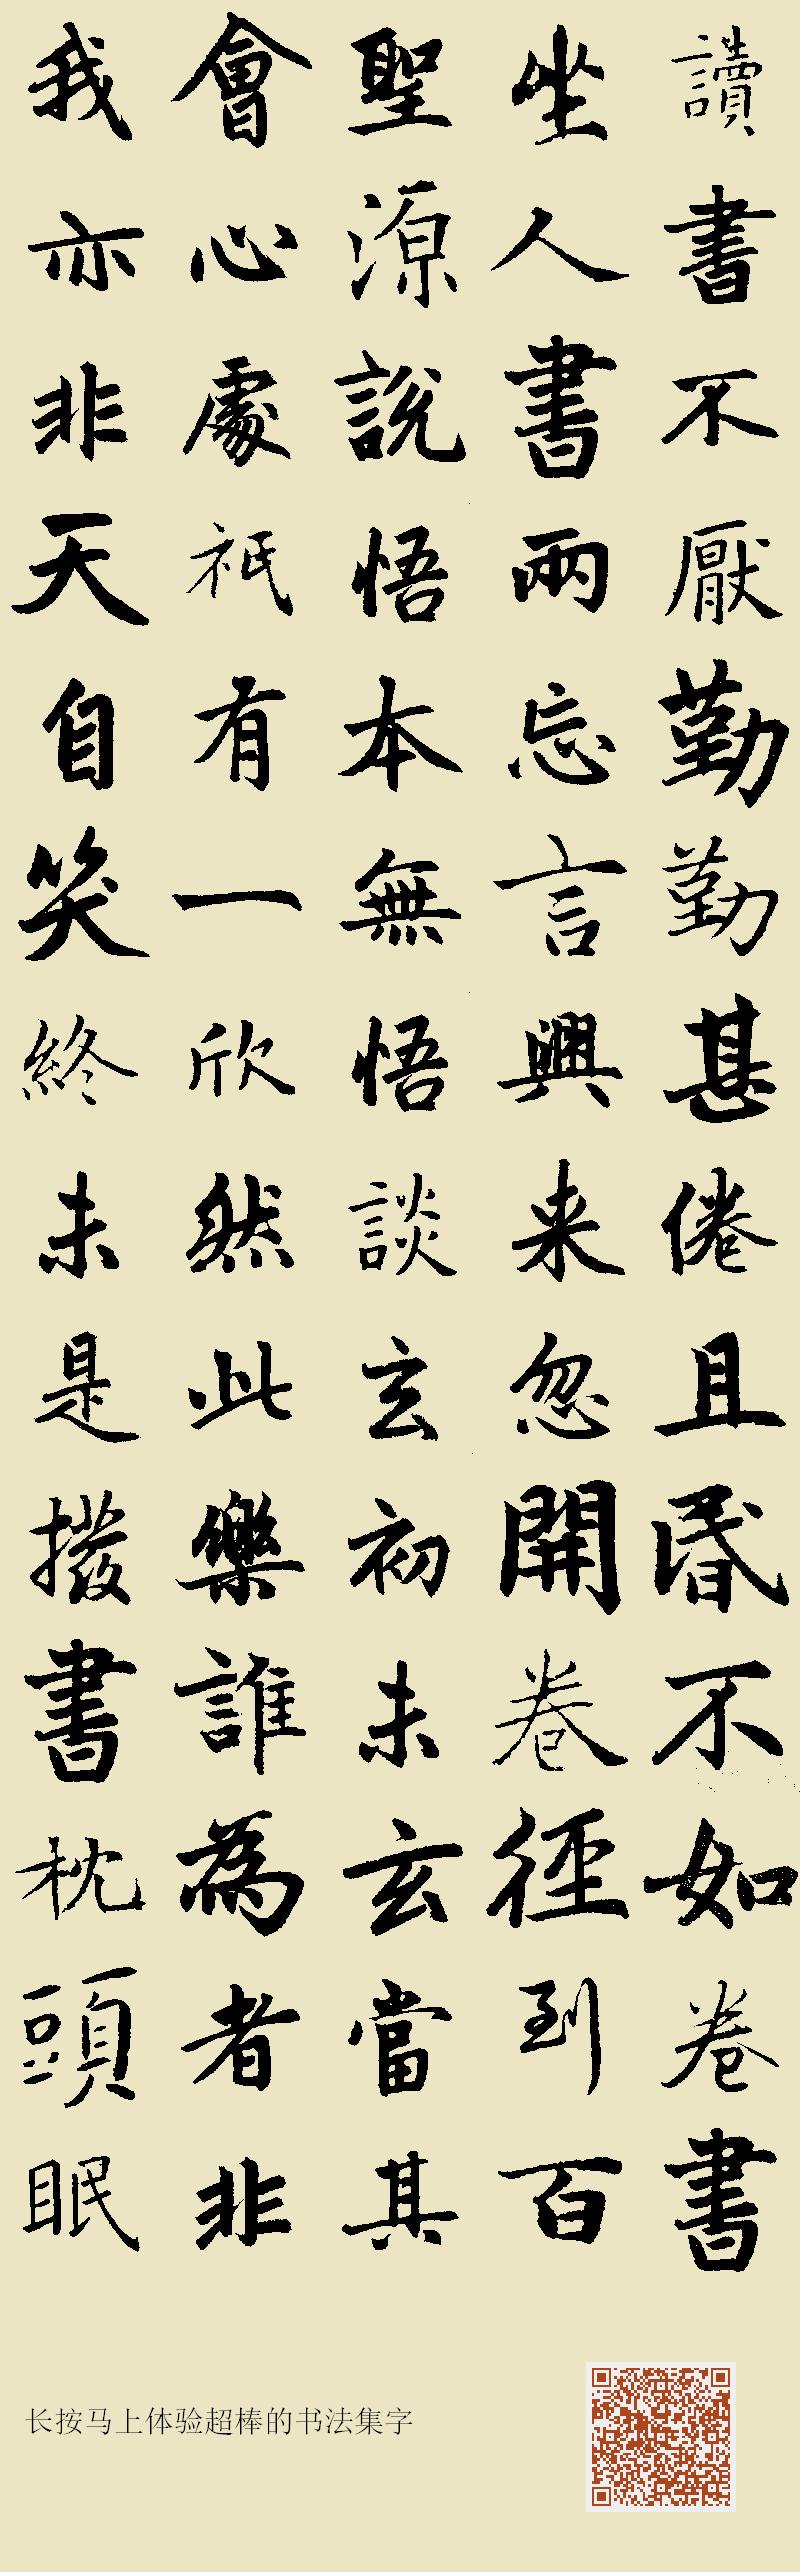 讀書不厭勤勤甚倦且昏不如卷書
坐人書兩忘言興来忽開卷徑到百
聖源說悟本無悟談玄初未玄當其
會心處祇有一欣然此樂誰為者非
我亦非天自笑終未是撥書枕頭眠
长按马上体验超棒的书法集字